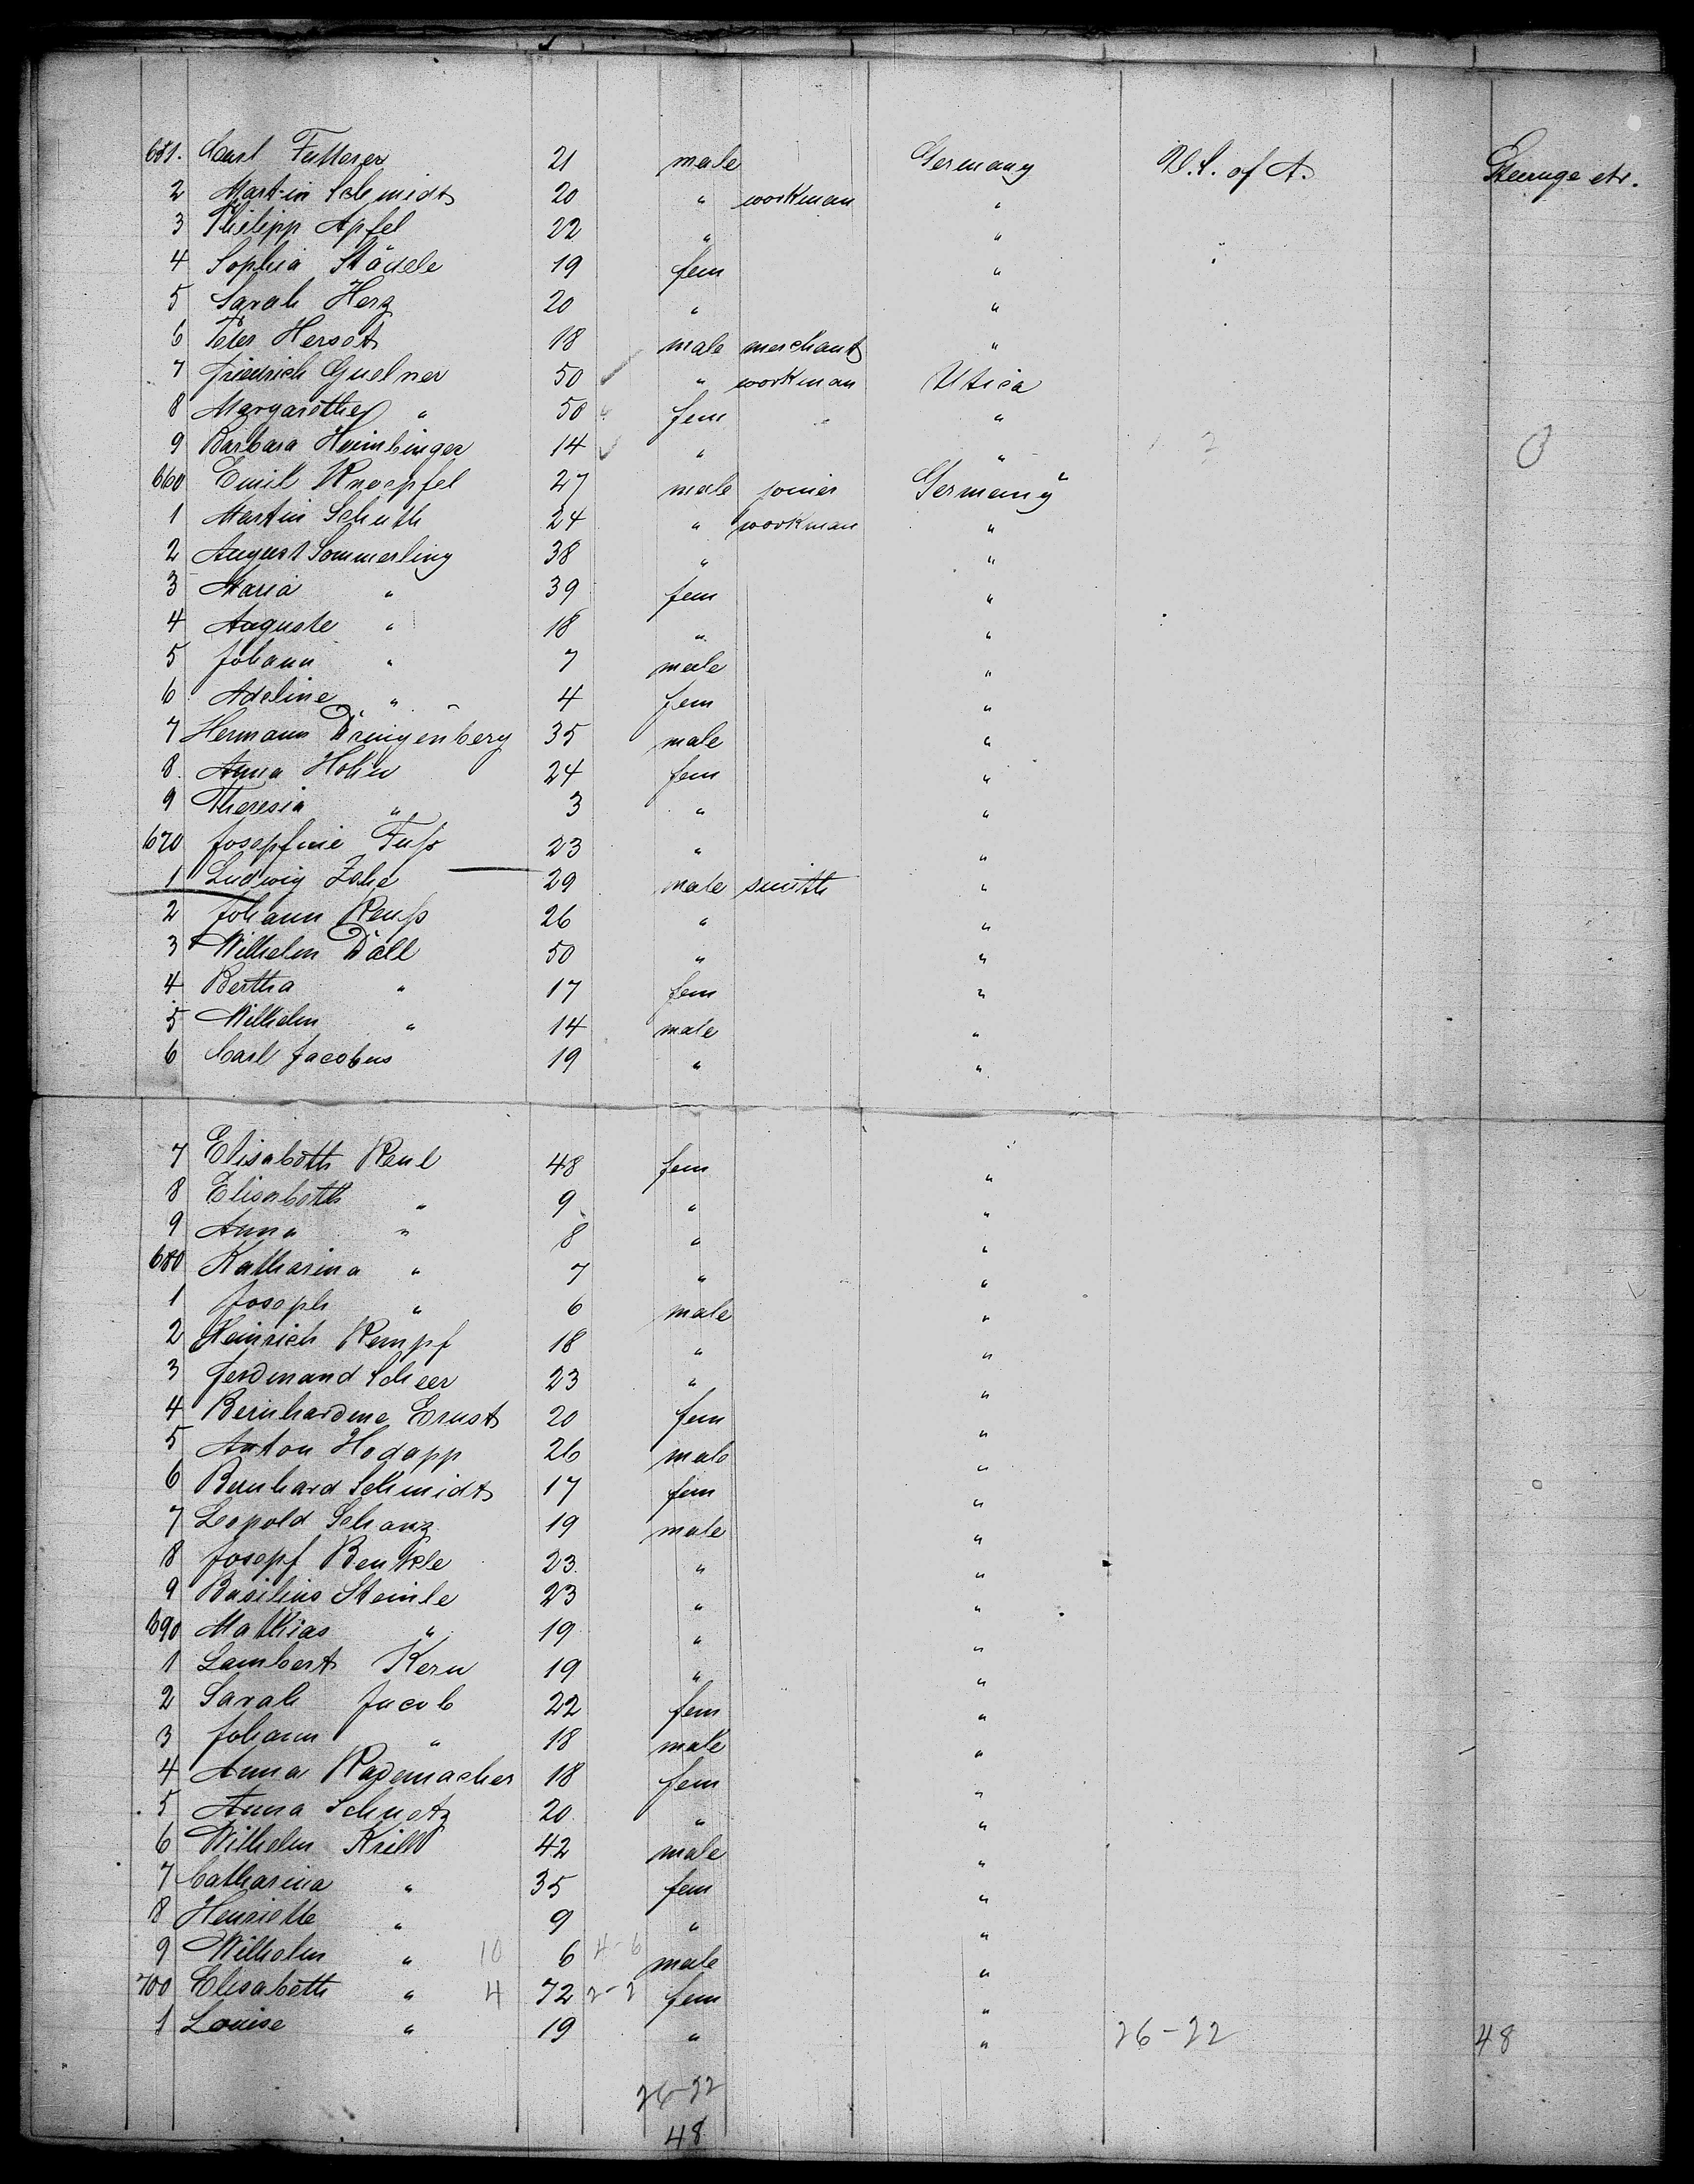 651. Carl Futterer 21 male Germany U.S. of A. Steerage etc.
2 Martin Schmidt 20 " workman "
3 Philipp Apfel 22 " "
4 Sophia Städele 19 fem "
5 Sarah Herz 20 " "
6 Peter Herodt 18 male merchant "
7 Friedrich Guelner 50 " workman Utica
8 Margarethe " 50 fem "
9 Barbara Heimbinger 14 " "
660 Emil Knoepfel 27 male joiner Germany
1 Martin Schuth 24 " workman "
2 August Sommerling 38 " "
3 Maria " 39 fem "
4 Auguste " 18 " "
5 Johann " 7 male "
6 Adeline " 4 fem "
7 Hermann Dringenberg 35 male "
8. Anna Hohn 24 fem "
9 Theresia " 3 " "
670 Josephine Fuß 23 " "
1 Ludwig Zahe 29 male smith "
2 Johann Reuß 26 " "
3 Wilhelm Däll 50 " "
4 Bertha " 17 fem "
5 Wilhelm " 14 male "
6 Carl Jacobus 19 " "
7 Elisabeth Reul 48 fem "
8 Elisabeth " 9 " "
9 Anna " 8 " "
680 Katharina " 7 " "
1 Joseph " 6 male "
2 Heinrich Rempf 18 " "
3 Ferdinand Scheer 23 " "
4 Bernhardine Ernst 20 fem "
5 Anton Hodapp 26 male "
6 Bernhard Schmidt 17 fem "
7 Leopold Schanz 19 male "
8 Josepf Benkle 23. " "
9 Basilius Steinle 23 " "
690 Mathias " 19 " "
1 Lambert Kern 19 " "
2 Sarah Jacob 22 fem "
3 Johann " 18 male "
4 Anna Rademacher 18 fem "
5 Anna Schuetz 20 " "
6 Wilhelm Krill 42 male "
7 Catharina " 35 fem "
8 Henriette " 9 " "
9 Wilhelm " 10 6 4-6 male "
700 Elisabeth " 4 72 2-2 fem "
1 Louise " 19 " " 26-22 48
26-22
48